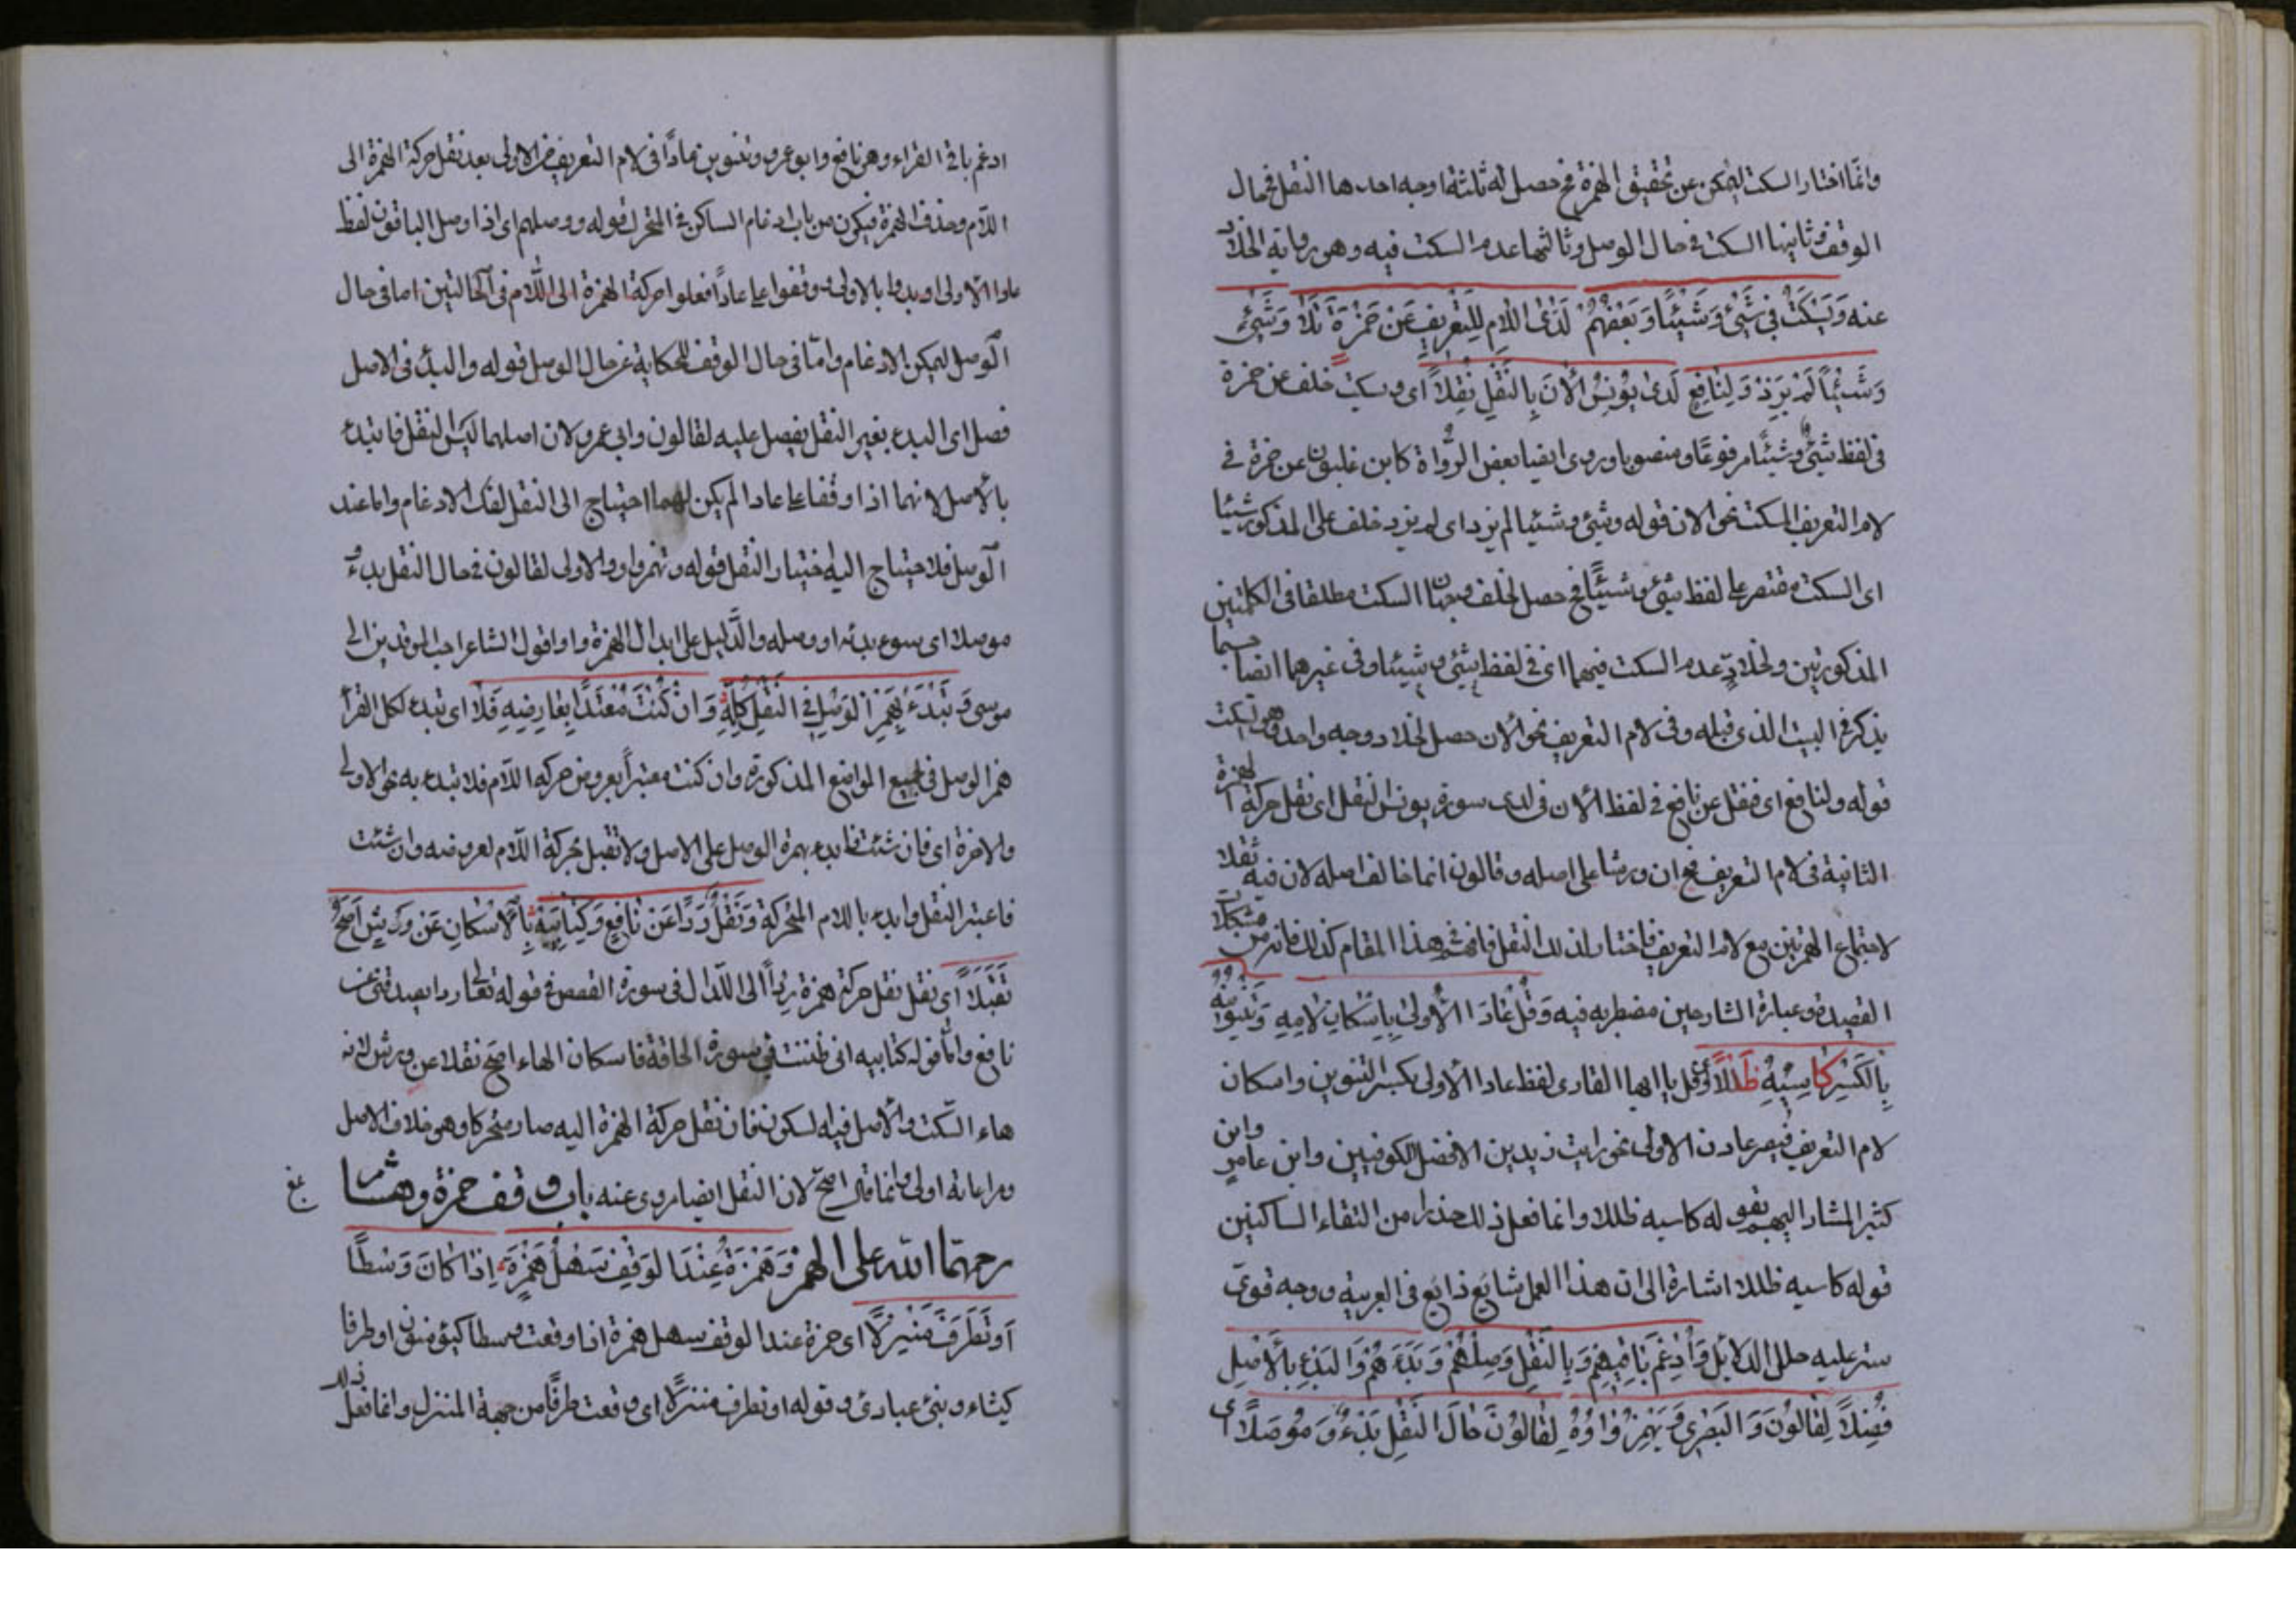 وانما اختار السكت ليمكن عن تحقيق الهمزة فح حصل له ثلثة اوجه احدها النقل في حال
الوقف وثانيها السكت في حال الوصل وثالثها عدم السكت فيه وهو رواية الخلاد
عنه وَيَسْكُتُ فِي شَيْءٍ وَشَيْئًا وَبَعْضُهُمْ لَدَى اللَّامِ لِلتَّعْرِيفِ عَنْ حَمْزَةَ تَلَا وَشَيْءٍ
وَشَيْئًا لَمْ يَزِدْ وَلِنَافِعٍ لَدَى يُونُسٍ الْآنَ بِالنَّقْلِ نُقِّلَا اى ويسكت خلف عن حمزة
فى لفظ شيء وشيئًا مرفوعًا ومنصوبا وروى ايضا بعض الرواة كابن غلبون عن حمزة في
لام التعريف السكت نحو الان قوله وشيء وشيئا لم يزد اى لم يزد خلف على المذكور شيئا
اى السكت مقتصر على لفظ شيء وشيئًا فح حصل لخلف وجهان السكت مطلقا فى الكلمتين
المذكورتين ولخلاد عدم السكت فيهما اى في لفظ شيء وشيئا وفى غيرهما ايضا حسبما
يذكر في البيت الذى قبله وفى لام التعريف نحو الان حصل لخلاد وجه واحد وهو السكت
قوله ولنافع اى فنقل عن نافع في لفظ الان فى لدى سورة يونس النقل اى نقل حركة الهمزة
الثانية فى لام التعريف فح ان ورشا على اصله وقالون انما خالف اصله لان فيه ثقلا
لاجتماع الهمزتين مع لام التعريف فاختار لذلك النقل فافهم في هذا المقام كذلك فانه من مشكلات
القصيدة وعبارة الشارحين مضطربة فيه وَقُلْ عَادًا الْأُولَى بِإِسْكَانِ لَامِهِ وَتَنْوِينُهُ
بِالْكَسْرِ كَاسِيهِ ظَلَّلَا اى قل يا ايها القارى لفظ عادا الأولى بكسر التنوين واسكان
لام التعريف فيصير عادن الاولى نحو رايت زيدين الافضل للكوفيين وابن عامر وابن
كثير المشار اليهم بقوله كاسيه ظللا وانما فعل ذلك حذرا من التقاء الساكنين
قوله كاسيه ظللا اشارة الى ان هذا العمل شايع ذايع فى العربية ووجه قوى
ستر عليه حلل الدلايل وَأَدْغَمَ بَاقِيهِمْ وَبِالنَّقْلِ وَصْلُهُمْ وَبَدْؤُهُمْ وَالْبَدْءُ بِالْأَصْلِ
فُضِّلَا لِقَالُونَ وَالْبَصْرِي وَيُهْمَزُ وَاوُهُ لِقَالُونَ حَالَ النَّقْلِ بَدْءً وَمُوصَلًا اى
ادغم باقي القراء وهو نافع وابو عمرو وتنوين عادًا فى لام التعريف من الاولى بعد نقل حركة الهمزة الى
اللام وحذف الهمزة فيكون من باب ادغام الساكن في المتحرك قوله ووصلهم اى اذا وصل الباقون لفظ
عادا الاولى او بدؤا بالاولى ووقفوا على عادًا فعلوا حركة الهمزة الى اللام فى الحالتين اما فى حال
الوصل ليمكن الادغام واما فى حال الوقف للحكاية عن حال الوصل قوله والبدء فى الاصل
فصل اى البدء بغير النقل يفصل عليه لقالون وابى عمرو لان اصلهما ليس النقل فابتدء
بالأصل لانهما اذا وقفا على عادا لم يكن لهما احتياج الى النقل لفك الادغام واما عند
الوصل فلاحتياج اليه اختيار النقل قوله وتهمز واو والاولى لقالون في حال النقل بدءً
موصلا اى سوء بدئه او وصله والدليل على ابدال الهمزة واوا قول الشاعر احب الموقدين الى
موسى وَتَبْدَءُ بِهَمْزِ الْوَصْلِ فِي النَّقْلِ كُلِّهِ وَإِنْ كُنْتَ مُعْتَدًّا بِعَارِضِهِ فَلَا اى تبدء لكل القراء
همز الوصل فى جميع المواضع المذكورة وان كنت معتبرًا بعروض حركة اللام فلا تبدء به نحو الاولى
والاخرة اى فان شئت فابدء بهمزة الوصل على الاصل ولا تقبل بحركة اللام لعروضه وان شئت
فاعتبر النقل وابدء باللام المتحركة وَنَقْلُ رِدًا عَنْ نَافِعٍ وَكِتَابِيَهْ بِالْإِسْكَانِ عَنْ وَرْشٍ أَصَحُّ
تَقَبُّلَا اى نقل نقل حركة همزة ردءًا الى الدال فى سورة القصص في قوله تعالى ردا يصدقنى عن
نافع واما قوله كتابيه انى ظننت في سورة الحاقة فاسكان الهاء اصح نقلا عن ورش لانه
هاء السكت والأصل فيه السكون فان نقل حركة الهمزة اليه صار متحركا وهو خلاف الاصل
ومراعاته اولى وانما قال اصح لان النقل ايضا روى عنه باب وقف حمزة وهشام
رحمهما الله على الهمز وَحَمْزَةُ عِنْدَ الْوَقْفِ سَهَّلَ هَمْزَهُ إِذَا كَانَ وَسْطًا
أَوْ تَطَرَّفَ مَنْزِلًا اى حمزة عند الوقف سهل همزة اذا وقعت وسطا كيؤمنون او طرفا
كيشاء ونبئ عبادى وقوله او تطرف منزلًا اى وقعت طرفًا من جهة المنزل وانما فعل ذلك